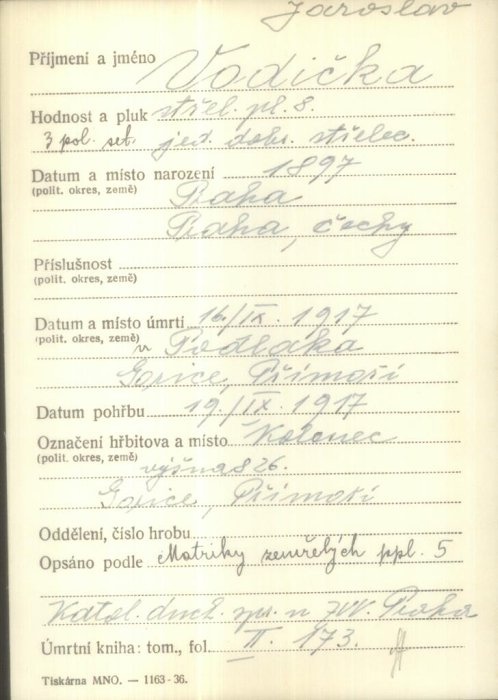 Jaroslav
Příjmení a jméno Vodička
Hodnost a pluk střel. pl. 8.
3 pol. set. jed. dobr. střelec.
Datum a místo narození 1897
(polit. okres, země) Praha
Praha, Čechy
Příslušnost
(polit. okres, země)
Datum a místo úmrtí 16/IX. 1917
(polit. okres, země) u Podlaka
Gorice, Přímoří
Datum pohřbu 19/IX. 1917
Označení hřbitova a místo Kolonec
(polit. okres, země) výšina 826.
Gorice, Přímoří
Oddělení, číslo hrobu
Opsáno podle Matriky zemřelých ppl. 5
Katol. duch. spr. u Praha
Úmrtní kniha: tom., fol. II. 173.
Tiskárna MNO. — 1163-36.